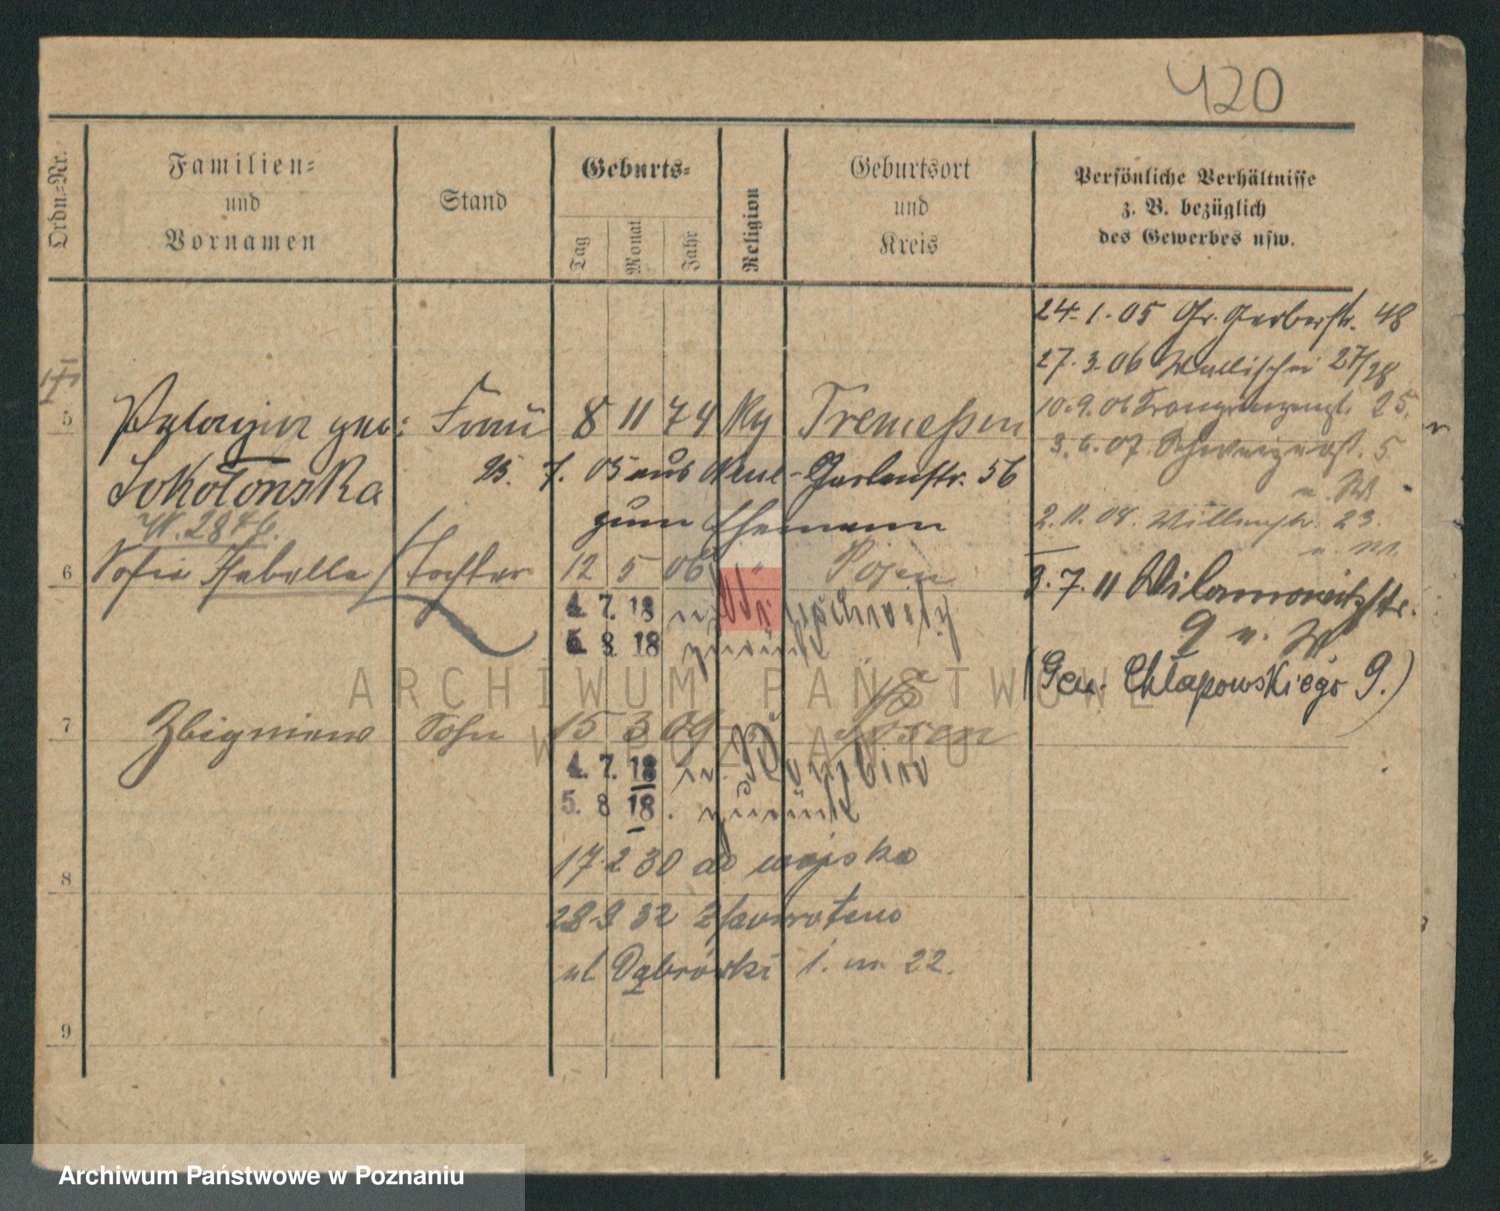 420
Ordn.-Nr.
Familien-
und
Vornamen
Stand
Geburts-
Tag
Monat
Jahr
Religion
Geburtsort
und
Kreis
Persönliche Verhältnisse
z. B. bezüglich
des Gewerbes usw.
24. 1. 05 Gr. Gerberstr. 48
27. 3. 06 Wallischei 27/28
10. 9. 06 25.
3. 6. 07 5
2. 11. 08. 23.
9. 7. 11 Wilamowitzstr.
9 u. W
(Gen. Chłapowskiego 9.)
5 Pelagia geb: Frau 8 11 74 Tremessen
Sokołonska
25. 7. 05 aus Neue-Gartenstr. 56
zum Ehemann
6 Sofie Isabella Tochter 12 5 06 " Posen
4. 7. 18 n.
5. 8. 18 zurück
7 Zbigniew Sohn 15 3 09 Posen
4. 7. 18 n.
5. 8 18. zurück
8 17 2 30 do wojska
28 9 32 z powrotem
ul Dąbrówki 1. m. 22.
9
ARCHIWUM PAŃSTWOWE
W POZNANIU
Archiwum Państwowe w Poznaniu